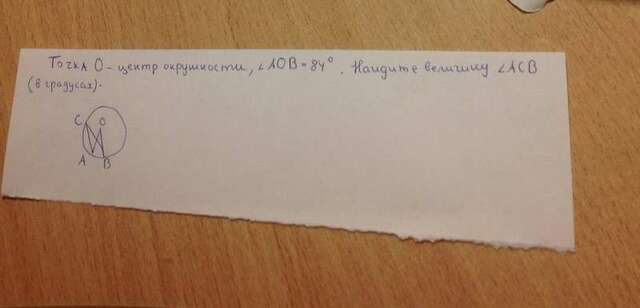 Точка О - центр окружности, ∠AOB = 84°. Найдите величину ∠ACB
(в градусах).
C O
A B